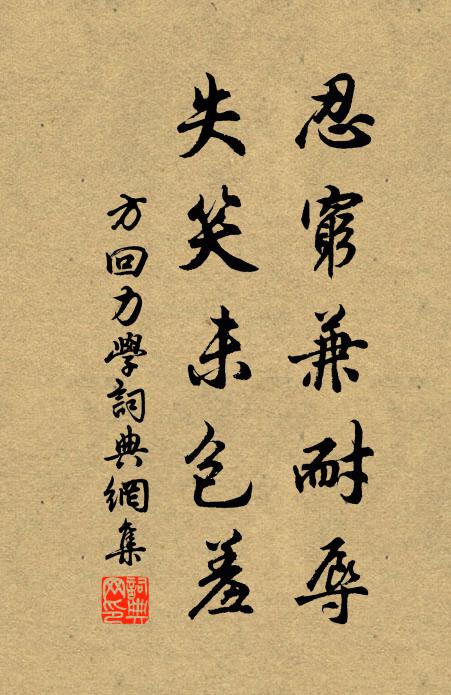 忍窮兼耐辱
失笑未包羞
方回力學詞典網集
詞典網印